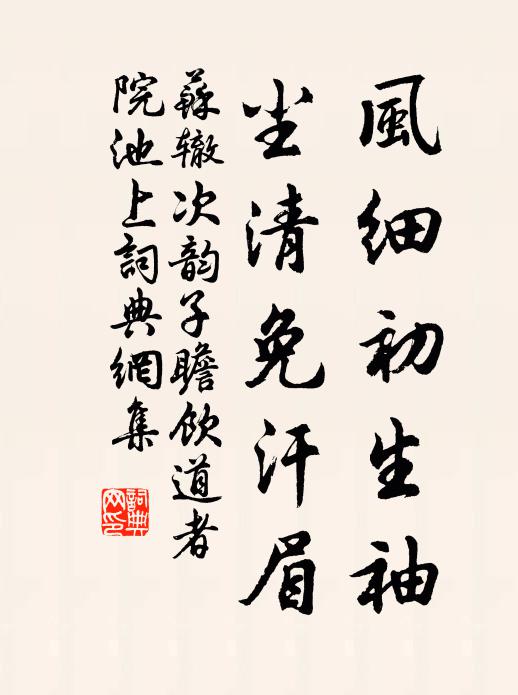 風細初生袖
尘清免汗眉
蘇辙次韵子瞻飲道者
院池上詞典網集
詞典网印